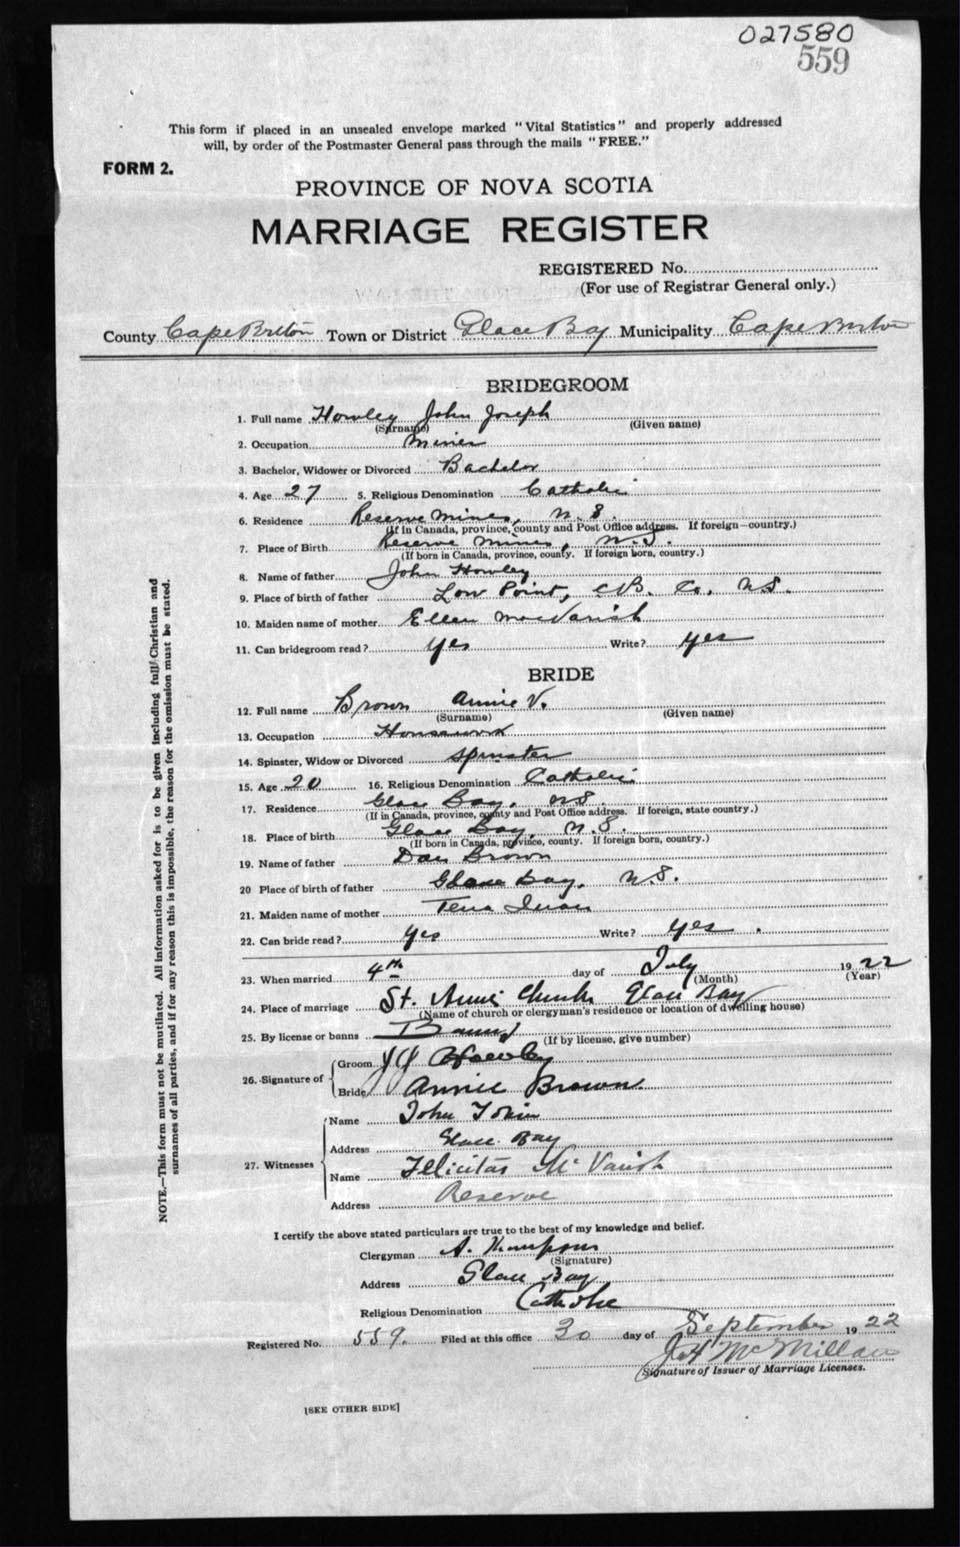 027580
559
This form if placed in an unsealed envelope marked "Vital Statistics" and properly addressed
will, by order of the Postmaster General pass through the mails "FREE."
FORM 2.
PROVINCE OF NOVA SCOTIA
MARRIAGE REGISTER
REGISTERED No.
(For use of Registrar General only.)
County Cape Breton Town or District Glace Bay Municipality Cape Breton
BRIDEGROOM
1. Full name Howley John Joseph
(Surname) (Given name)
2. Occupation Miner
3. Bachelor, Widower or Divorced Bachelor
4. Age 27 5. Religious Denomination Catholic
6. Residence Reserve Mines, N.S.
(If in Canada, province, county and Post Office address. If foreign—country.)
7. Place of Birth Reserve Mines, N.S.
(If born in Canada, province, county. If foreign born, country.)
8. Name of father John Howley
9. Place of birth of father Low Point, C.B. Co. N.S.
10. Maiden name of mother Ellen MacVarish
11. Can bridegroom read? Yes Write? Yes
BRIDE
12. Full name Brown Annie V.
(Surname) (Given name)
13. Occupation Housework
14. Spinster, Widow or Divorced Spinster
15. Age 20 16. Religious Denomination Catholic
17. Residence Glace Bay, N.S.
(If in Canada, province, county and Post Office address. If foreign, state country.)
18. Place of birth Glace Bay, N.S.
(If born in Canada, province, county. If foreign born, country.)
19. Name of father Dan Brown
20 Place of birth of father Glace Bay, N.S.
21. Maiden name of mother Tena
22. Can bride read? Yes Write? Yes.
23. When married 4th day of July 1922
(Month) (Year)
24. Place of marriage St. Anne's Church Glace Bay
(Name of church or clergyman's residence or location of dwelling house)
25. By license or banns Banns
(If by license, give number)
26. Signature of Groom J J Howley
Bride Annie Brown
27. Witnesses
Name John Tobin
Address Glace Bay
Name Felicitas McVarish
Address Reserve
I certify the above stated particulars are true to the best of my knowledge and belief.
Clergyman A. Thompson
(Signature)
Address Glace Bay
Religious Denomination Catholic
Registered No. 559. Filed at this office 30 day of September 1922
McMillan
Signature of Issuer of Marriage Licenses.
[SEE OTHER SIDE]
NOTE.—This form must not be mutilated. All information asked for is to be given including full Christian and
surnames of all parties, and if for any reason this is impossible, the reason for the omission must be stated.